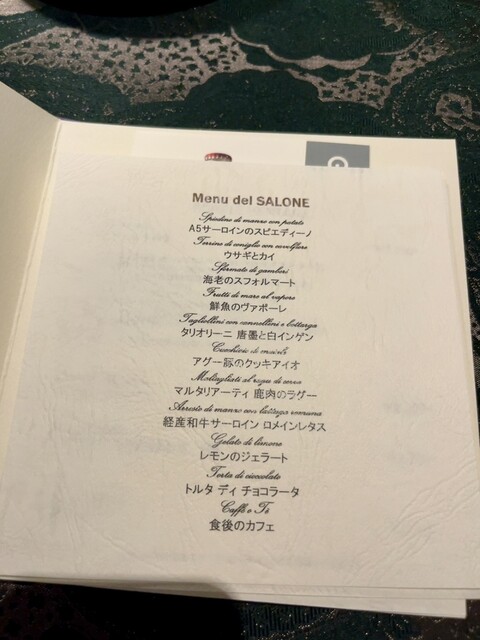 Menu del SALONE
Spiedino di manzo con patate
A5サーロインのスピエディーノ
Terrina di coniglio con cavolfiore
ウサギとカイ
Sformato di gamberi
海老のスフォルマート
Frutti di mare al vapore
鮮魚のヴァポーレ
Tagliollini con cannellini e bottarga
タリオリーニ 唐墨と白インゲン
Cucchiaio di
アグー豚のクッキアイオ
Maltagliati al ragu di cervo
マルタリアーティ 鹿肉のラグー
Arrosto di manzo con lattuga romana
経産和牛サーロイン ロメインレタス
Gelato di limone
レモンのジェラート
Torta di cioccolato
トルタ ディ チョコラータ
Caffè o Tè
食後のカフェ